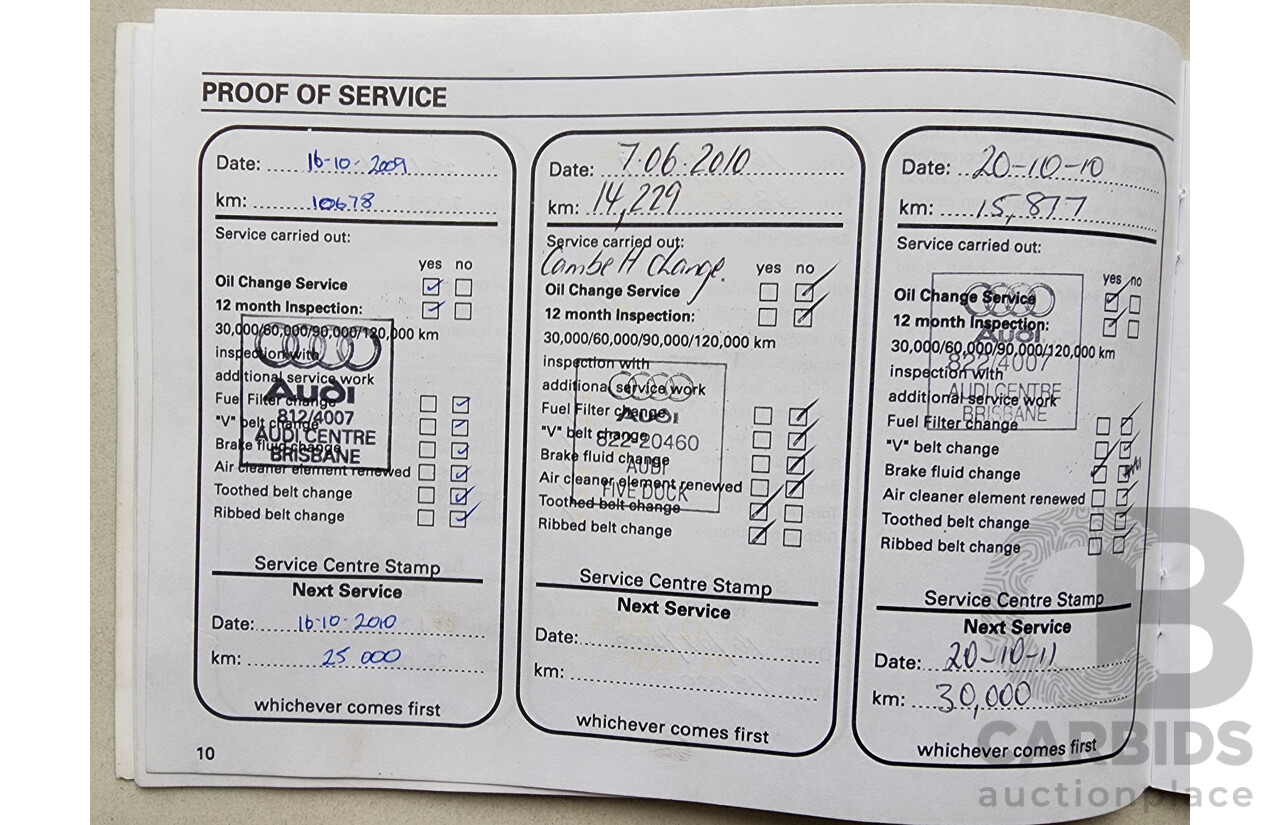 PROOF OF SERVICE
Date: 16-10-2009
km: 10678
Service carried out:
yes no
Oil Change Service
12 month Inspection:
30,000/60,000/90,000/120,000 km
inspection with
additional service work
Fuel Filter change
"V" belt change
Brake fluid change
Air cleaner element renewed
Toothed belt change
Ribbed belt change
Audi
812/4007
AUDI CENTRE
BRISBANE
Service Centre Stamp
Next Service
Date: 16-10-2010
km: 25 000
whichever comes first
Date: 7.06.2010
km: 14,229
Service carried out:
Cambelt Change.
yes no
Oil Change Service
12 month Inspection:
30,000/60,000/90,000/120,000 km
inspection with
additional service work
Fuel Filter change
"V" belt change
Brake fluid change
Air cleaner element renewed
Toothed belt change
Ribbed belt change
Audi
822-20460
AUDI
FIVE DOCK
Service Centre Stamp
Next Service
Date:
km:
whichever comes first
Date: 20-10-10
km: 15,877
Service carried out:
yes no
Oil Change Service
12 month Inspection:
30,000/60,000/90,000/120,000 km
inspection with
additional service work
Fuel Filter change
"V" belt change
Brake fluid change
Air cleaner element renewed
Toothed belt change
Ribbed belt change
Audi
AUDI CENTRE
BRISBANE
Service Centre Stamp
Next Service
Date: 20-10-11
km: 30,000
whichever comes first
10
CARBIDS
auctionplace